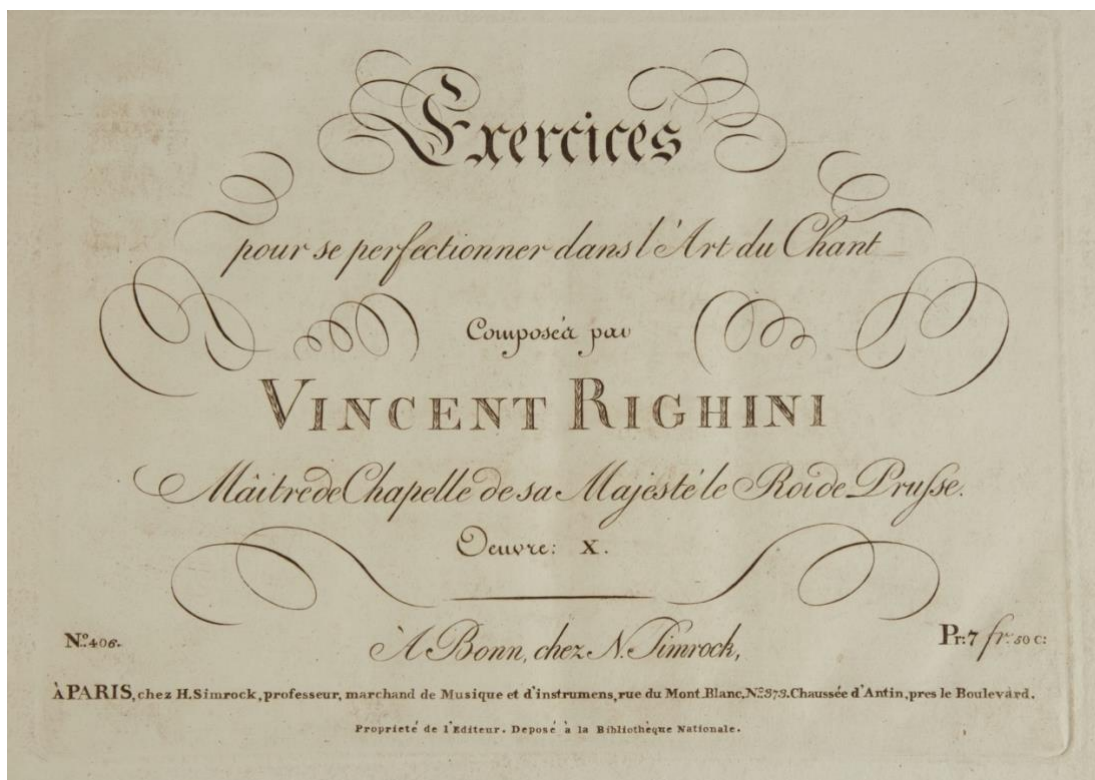 Exercices
pour se perfectionner dans l'Art du Chant
Composés par
VINCENT RIGHINI
Mâitre de Chapelle de sa Majesté le Roi de Prusse.
Oeuvre: X.
Nº. 406.
À Bonn, chez N. Simrock,
Pr: 7 fr. 50 c:
À PARIS, chez H. Simrock, professeur, marchand de Musique et d'instrumens, rue du Mont Blanc, Nº. 373. Chaussée d'Antin, pres le Boulevard.
Proprieté de l'Editeur. Deposé à la Bibliothèque Nationale.